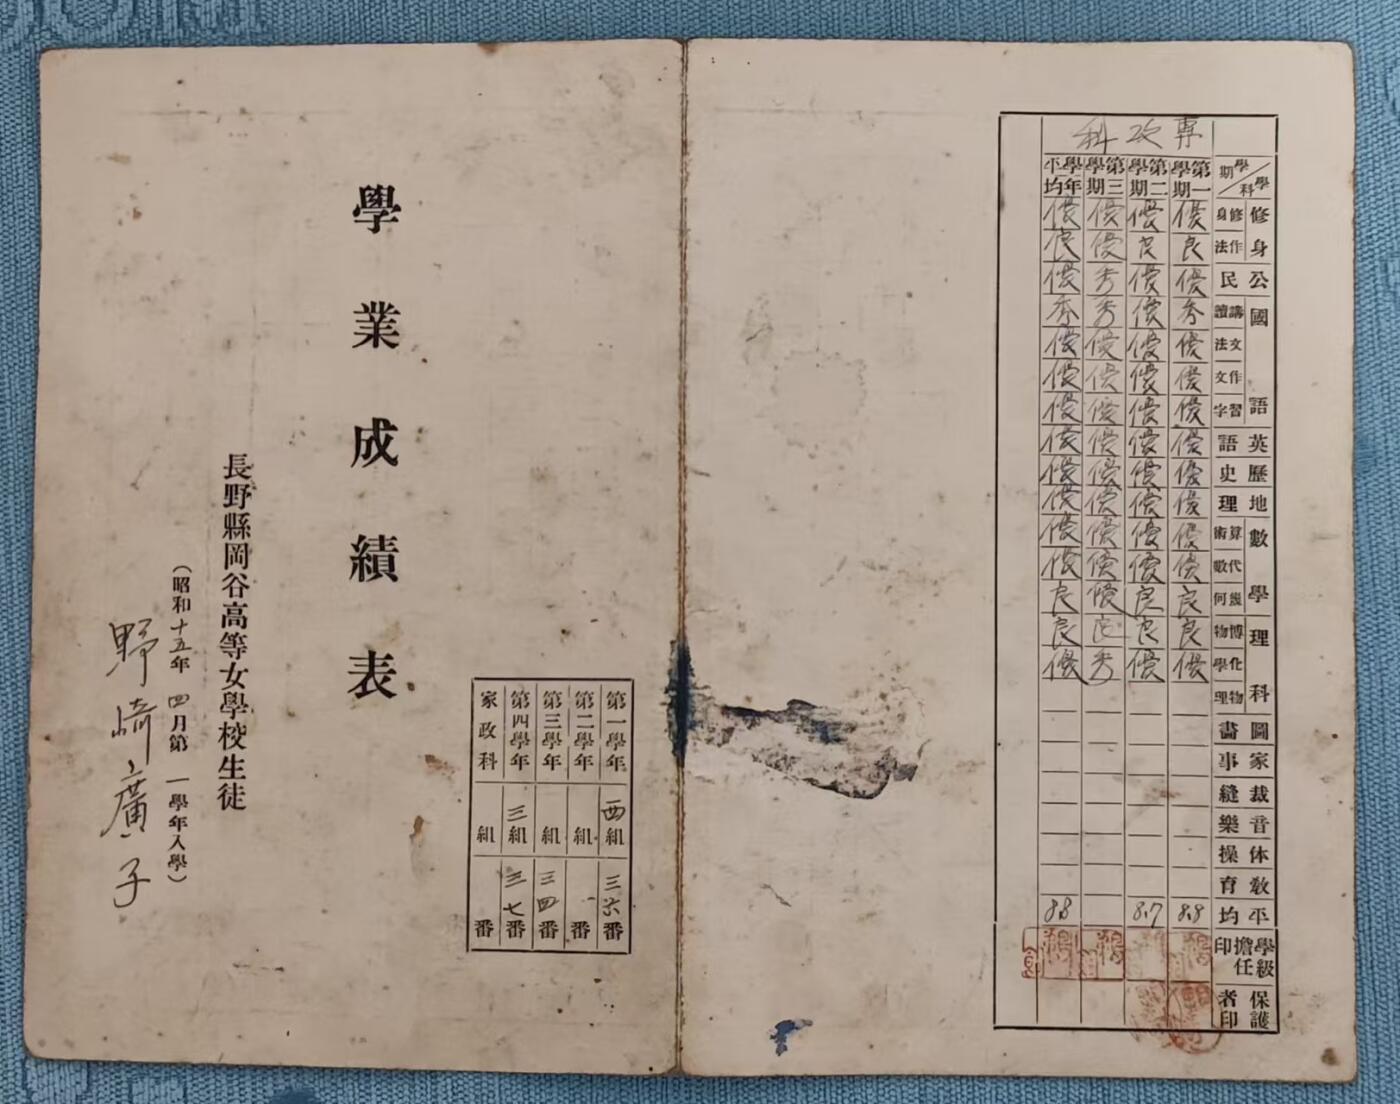 專攻科
學科 學期
修身 修身 作法
公民
國語 講讀 文法 作文 習字
英語
歷史
地理
數學 算術 代數 幾何
理科 博物 化學 物理
圖畫
家事
裁縫
音樂
体操
教育
平均
學級擔任印
保護者印
第一學期 優 良 優 秀 優 優 優 優 優 優 優 優 良 良 優 8.8
第二學期 優 良 優 優 優 優 優 優 優 優 優 優 良 良 優 8.7
第三學期 優 優 秀 秀 優 優 優 優 優 優 優 優 優 良 秀
學年平均 優 良 優 秀 優 優 優 優 優 優 優 優 良 良 優 8.8
第一學年 西組 三六番
第二學年 組 番
第三學年 組 三四番
第四學年 三組 三七番
家政科 組 番
學業成績表
長野縣岡谷高等女學校生徒
(昭和十五年四月第一學年入學)
野崎廣子